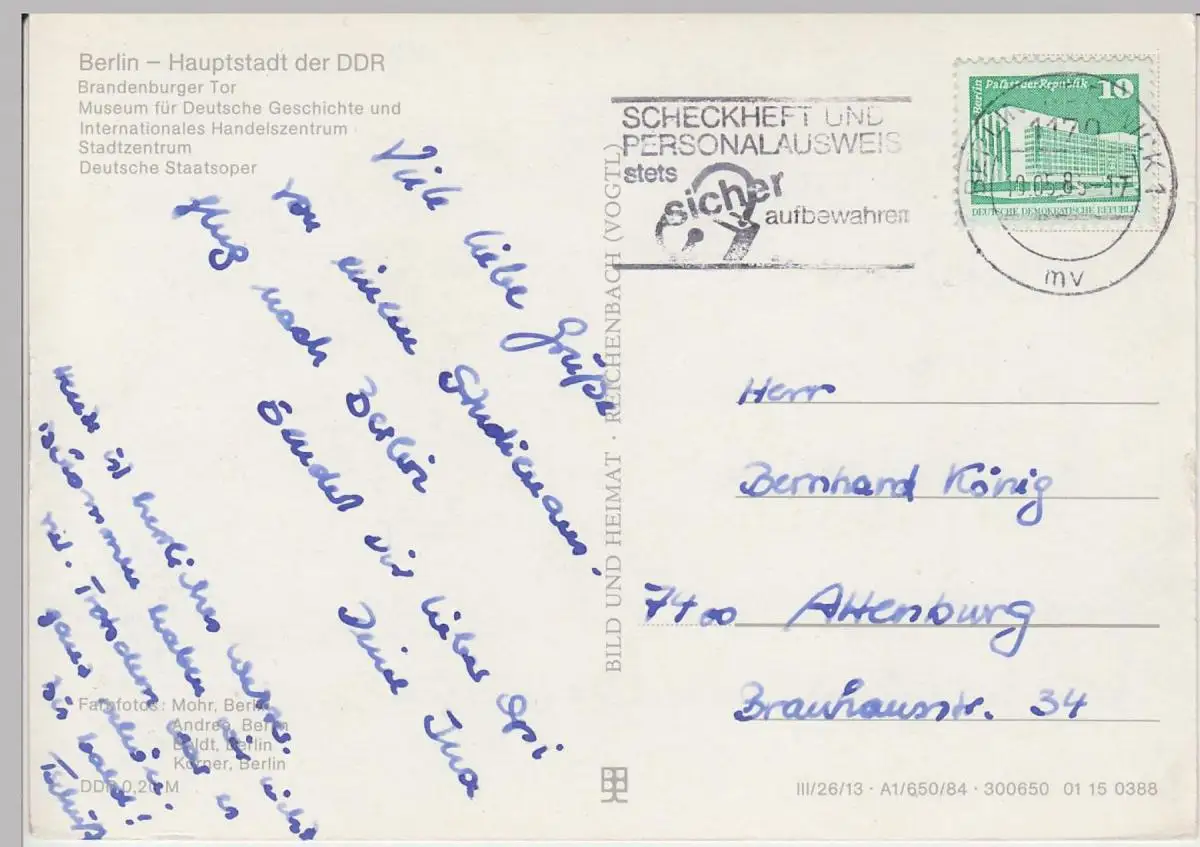 Berlin – Hauptstadt der DDR
Brandenburger Tor
Museum für Deutsche Geschichte und
Internationales Handelszentrum
Stadtzentrum
Deutsche Staatsoper
SCHECKHEFT UND
PERSONALAUSWEIS
stets
sicher
aufbewahren
Berlin Palast der Republik 10
DEUTSCHE DEMOKRATISCHE REPUBLIK
1170
mv
Viele liebe Grüße
von einem Studienaus-
flug nach Berlin
sendet dir lieber Opi
Deine Ina
ist herrliches
haben wir nicht
Trotzdem war es
ganz
Bis bald!
Tschüß
BILD UND HEIMAT · REICHENBACH (VOGTL)
Herr
Bernhard König
7400 Altenburg
Brauhausstr. 34
Farbfotos: Mohr, Berlin
Andree, Berlin
Boldt, Berlin
Körner, Berlin
DDR 0,20 M
III/26/13 · A1/650/84 · 300650 01 15 0388